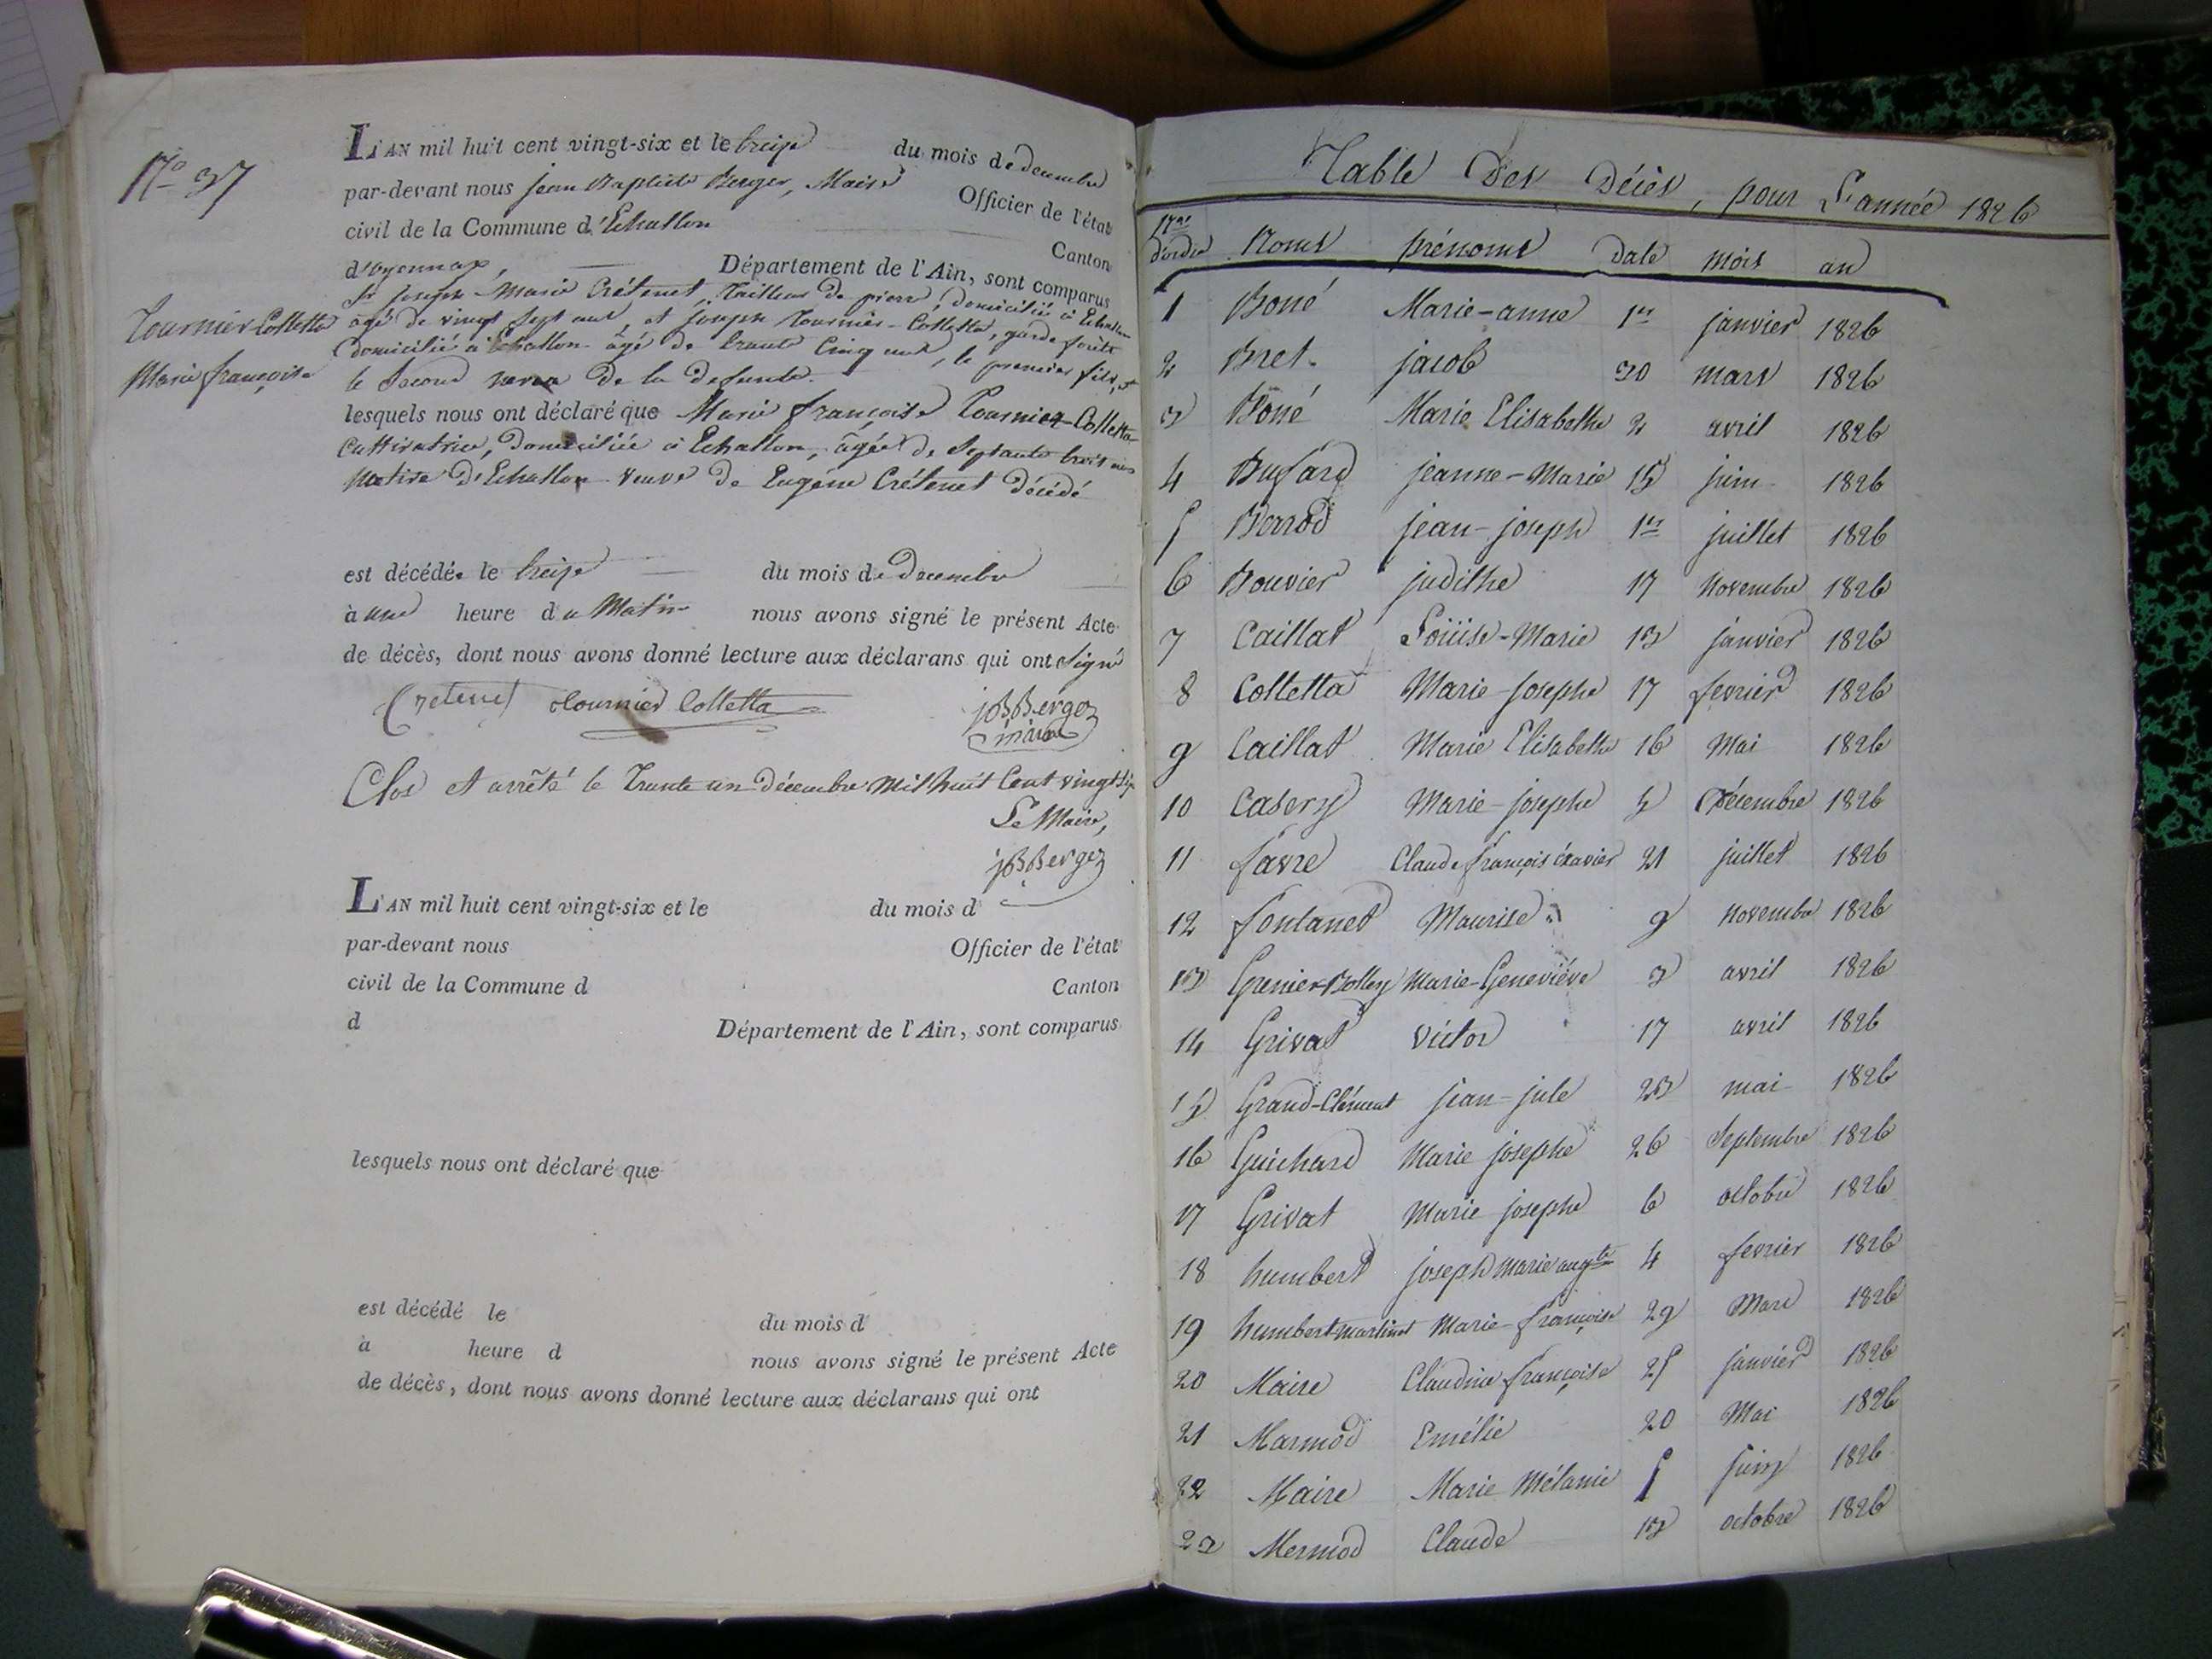 N° 37
Tournier-Colletta
Marie françoise
L'AN mil huit cent vingt-six et le treize du mois de decembre
par-devant nous jean Baptiste Berger, Maire Officier de l'état
civil de la Commune d'Echallon Canton
d'oyonnax, Département de l'Ain, sont comparus
Sr joseph-Marie Crétenet, Tailleur de pierre, domicilié à Echallon
âgé de vingt sept ans, et joseph Tournier-Colletta, garde forêts
domicilié à Echallon âgé de trente cinq ans, le premier fils, et
le Second neveu De la defunte.
lesquels nous ont déclaré que Marie françoise Tournier-Colletta
Cultivatrice, domiciliée à Echallon, âgée de Septante trois ans
Native D'Echallon Veuve De Eugéne Crétenet Décédé
est décédée le treize du mois de Decembre
à une heure du Matin nous avons signé le présent Acte
de décès, dont nous avons donné lecture aux déclarans qui ont Signé
Cretenet Tournier Colletta jBBerger
maire
Clos et arrêté le Trente un décembre Mil huit Cent vingt Six
Le Maire,
jBBerger
L'AN mil huit cent vingt-six et le du mois d
par-devant nous Officier de l'état
civil de la Commune d Canton
d Département de l'Ain, sont comparus
lesquels nous ont déclaré que
est décédé le du mois d
à heure d nous avons signé le présent Acte
de décès, dont nous avons donné lecture aux déclarans qui ont
Table Des Décès, pour L'année 1826
Nos d'ordre Noms prénoms Date mois an
1 Boné Marie-anne 1er janvier 1826
2 Bret jacob 30 mars 1826
3 Boné Marie Elisabethe 2 avril 1826
4 Bussard jeanne-Marie 15 juin 1826
5 Berrod jean-joseph 1er juillet 1826
6 Bouvier judithe 17 Novembre 1826
7 Caillat Loüise-Marie 13 janvier 1826
8 Colletta Marie-Josephe 17 fevrier 1826
9 Caillat Marie Elisabethe 16 Mai 1826
10 Casery Marie-josephe 5 Décembre 1826
11 favre Claude françois Exavier 21 juillet 1826
12 fontanet Maurise 9 Novembre 1826
13 Grenier-Bolley Marie-Geneviéve 3 avril 1826
14 Grivat Victor 17 avril 1826
15 Grand-Clément jean-jule 23 mai 1826
16 Guichard Marie josephe 26 Septembre 1826
17 Grivat Marie josephe 6 octobre 1826
18 humbert joseph Marie augte 4 fevrier 1826
19 humbert martinet Marie-françoise 29 Mars 1826
20 Maire Claudine françoise 25 janvier 1826
21 Marmod Emélie 20 Mai 1826
22 Maire Marie Mélanie 5 juin 1826
23 Mermod Claude 13 octobre 1826